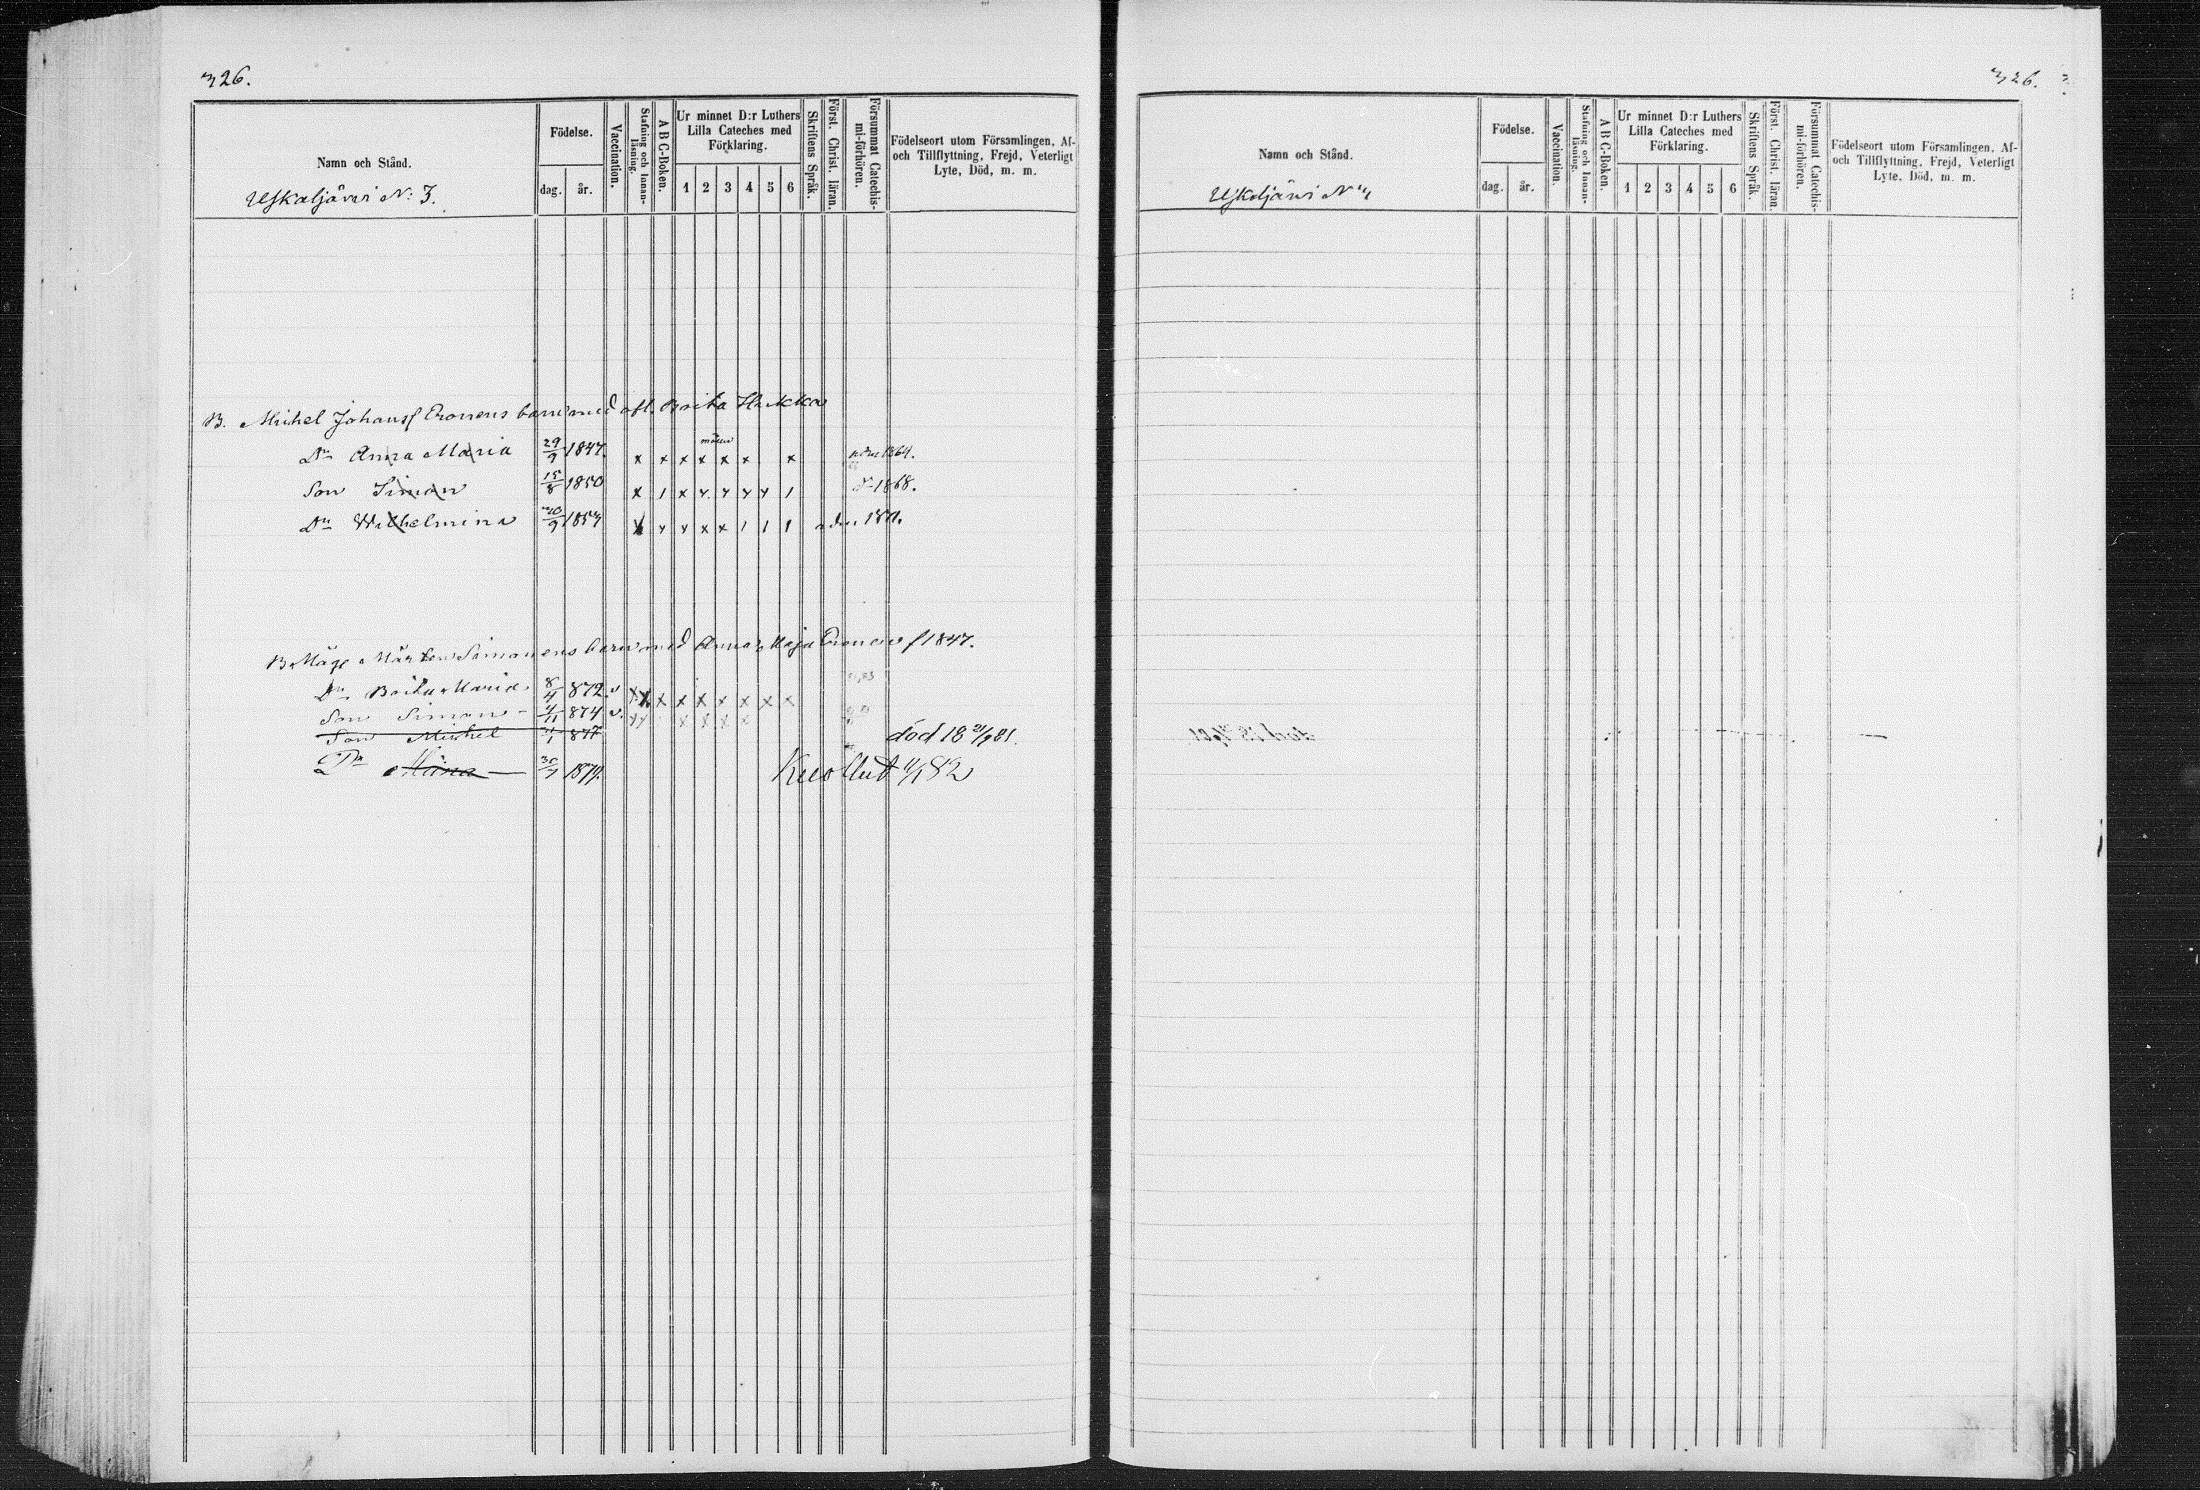 326.
Namn och Stånd.
Födelse.
dag.
år.
Vaccination.
Stafning och Innan-läsning.
A B C-Boken.
Ur minnet D:r Luthers Lilla Cateches med Förklaring.
1 2 3 4 5 6
Skriftens Språk.
Först. Christ. läran.
Försummat Catechis-mi-förhören.
Födelseort utom Församlingen, Af- och Tillflyttning, Frejd, Veterligt Lyte, Död, m. m.
Uskaljärvi N: 3.
B. Michel Johanss Eronens barn med afl. Brita Hukka
Dr Anna Maria 29/9 1847. x x x x x x x 1864.
Son Simon 15/8 1850 x 1 x x x x x 1 1868.
Dr Wilhelmina /9 1853 x x x x x 1 1 1
B. Måge Mårten Simonens barn med Anna Maja Eronen f 1847.
Dr Brita Maria 8/4 872. v x x x x x x x x x
Son Simon – 4/11 874 v.
Son Michel 877 död 18 21/9 81.
Dr Mina — 30/7 1879. Kuollut 11/1 82
326.
Namn och Stånd.
Födelse.
dag.
år.
Vaccination.
Stafning och Innan-läsning.
A B C-Boken.
Ur minnet D:r Luthers Lilla Cateches med Förklaring.
1 2 3 4 5 6
Skriftens Språk.
Först. Christ. läran.
Försummat Catechis-mi-förhören.
Födelseort utom Församlingen, Af- och Tillflyttning, Frejd, Veterligt Lyte, Död, m. m.
Uskaljärvi N